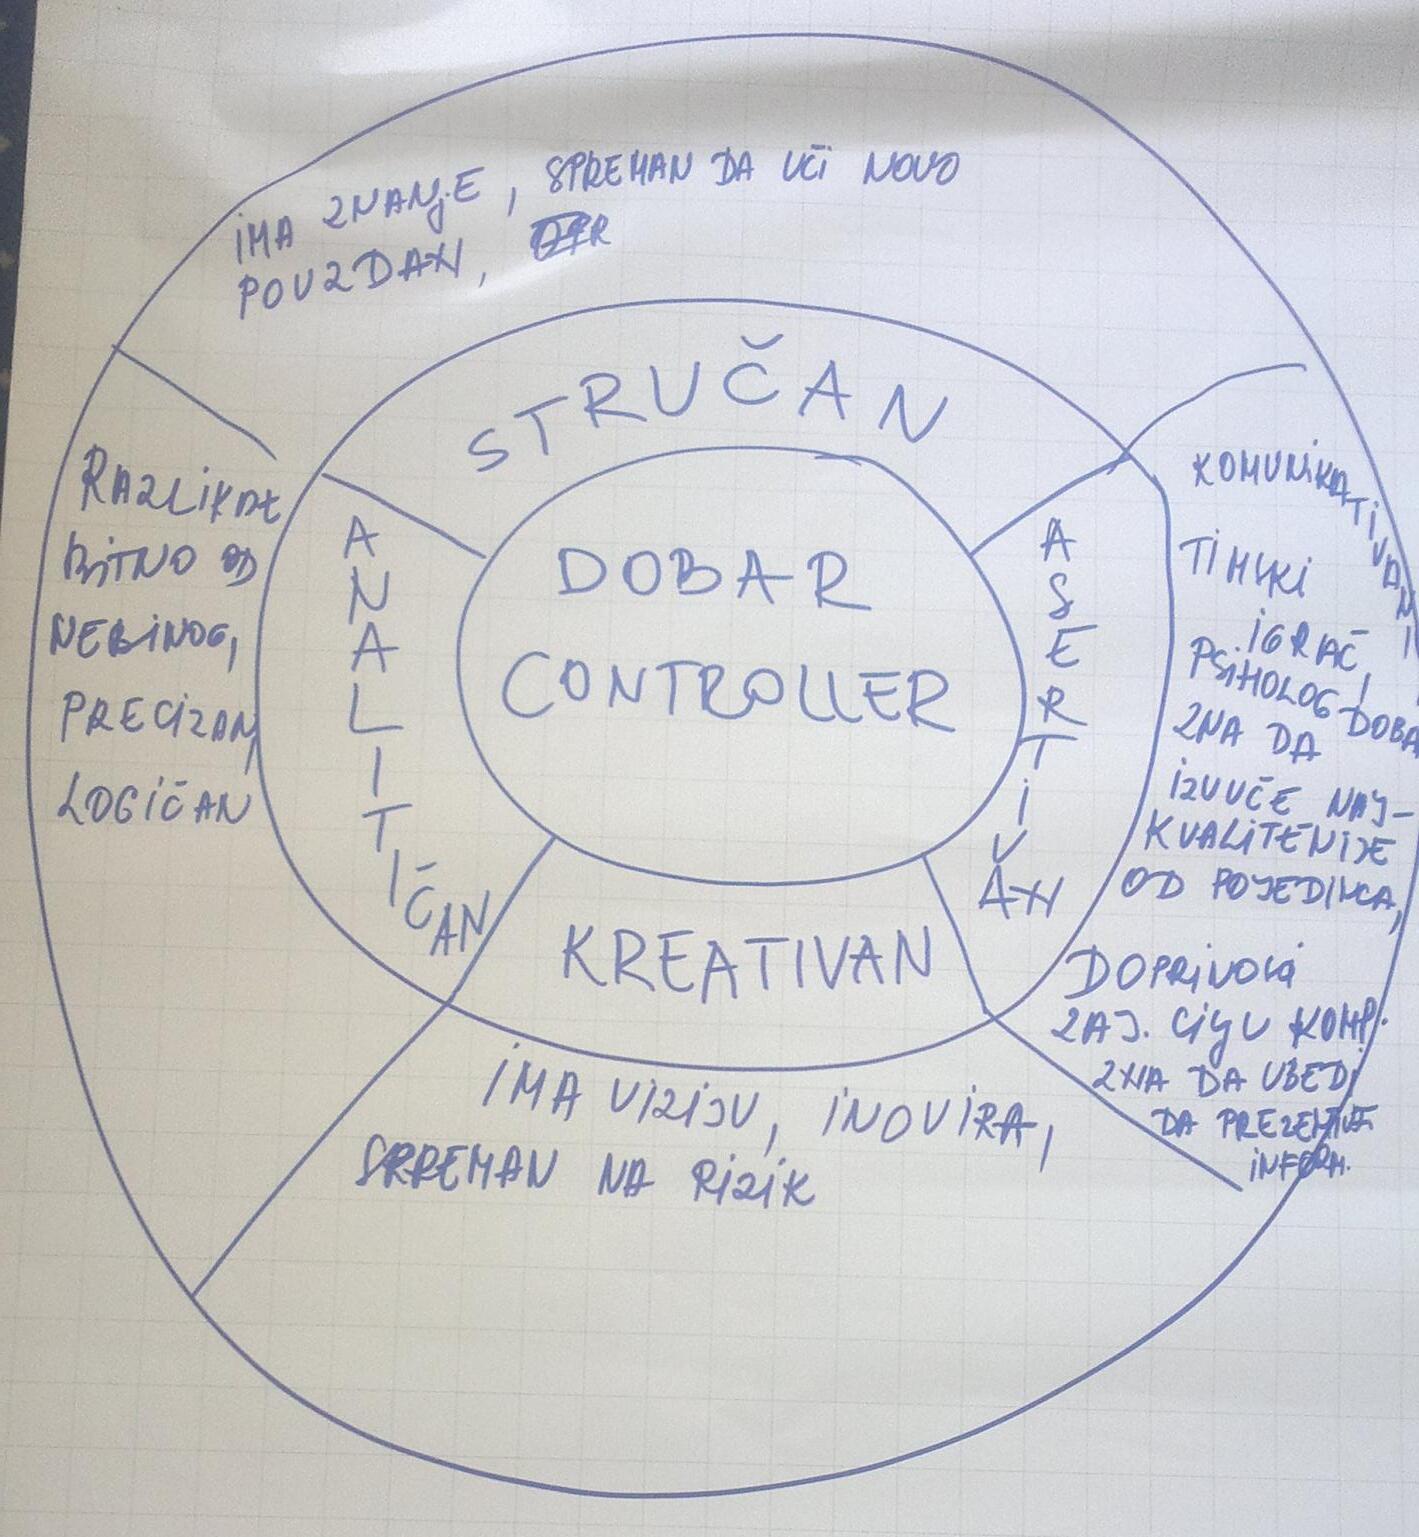 IMA ZNANJE, SPREMAN DA UČI NOVO
POUZDAN,
STRUČAN
DOBAR
CONTROLLER
ANALITIČAN
RAZLIKUJE
BITNO OD
NEBINOG,
PRECIZAN,
LOGIČAN
ASERTIVAN
KOMUNIKATIVAN,
TIMSKI
IGRAČ,
PSIHOLOG DOBAR
ZNA DA
IZVUČE NAJ-
KVALITENIJE
OD POJEDINCA,
DOPRINOSI
ZAJ. CILJU KOMP.
ZNA DA UBEDI
DA PREZENTUJE
INFORM.
KREATIVAN
IMA VIZIJU, INOVIRA,
SPREMAN NA RIZIK